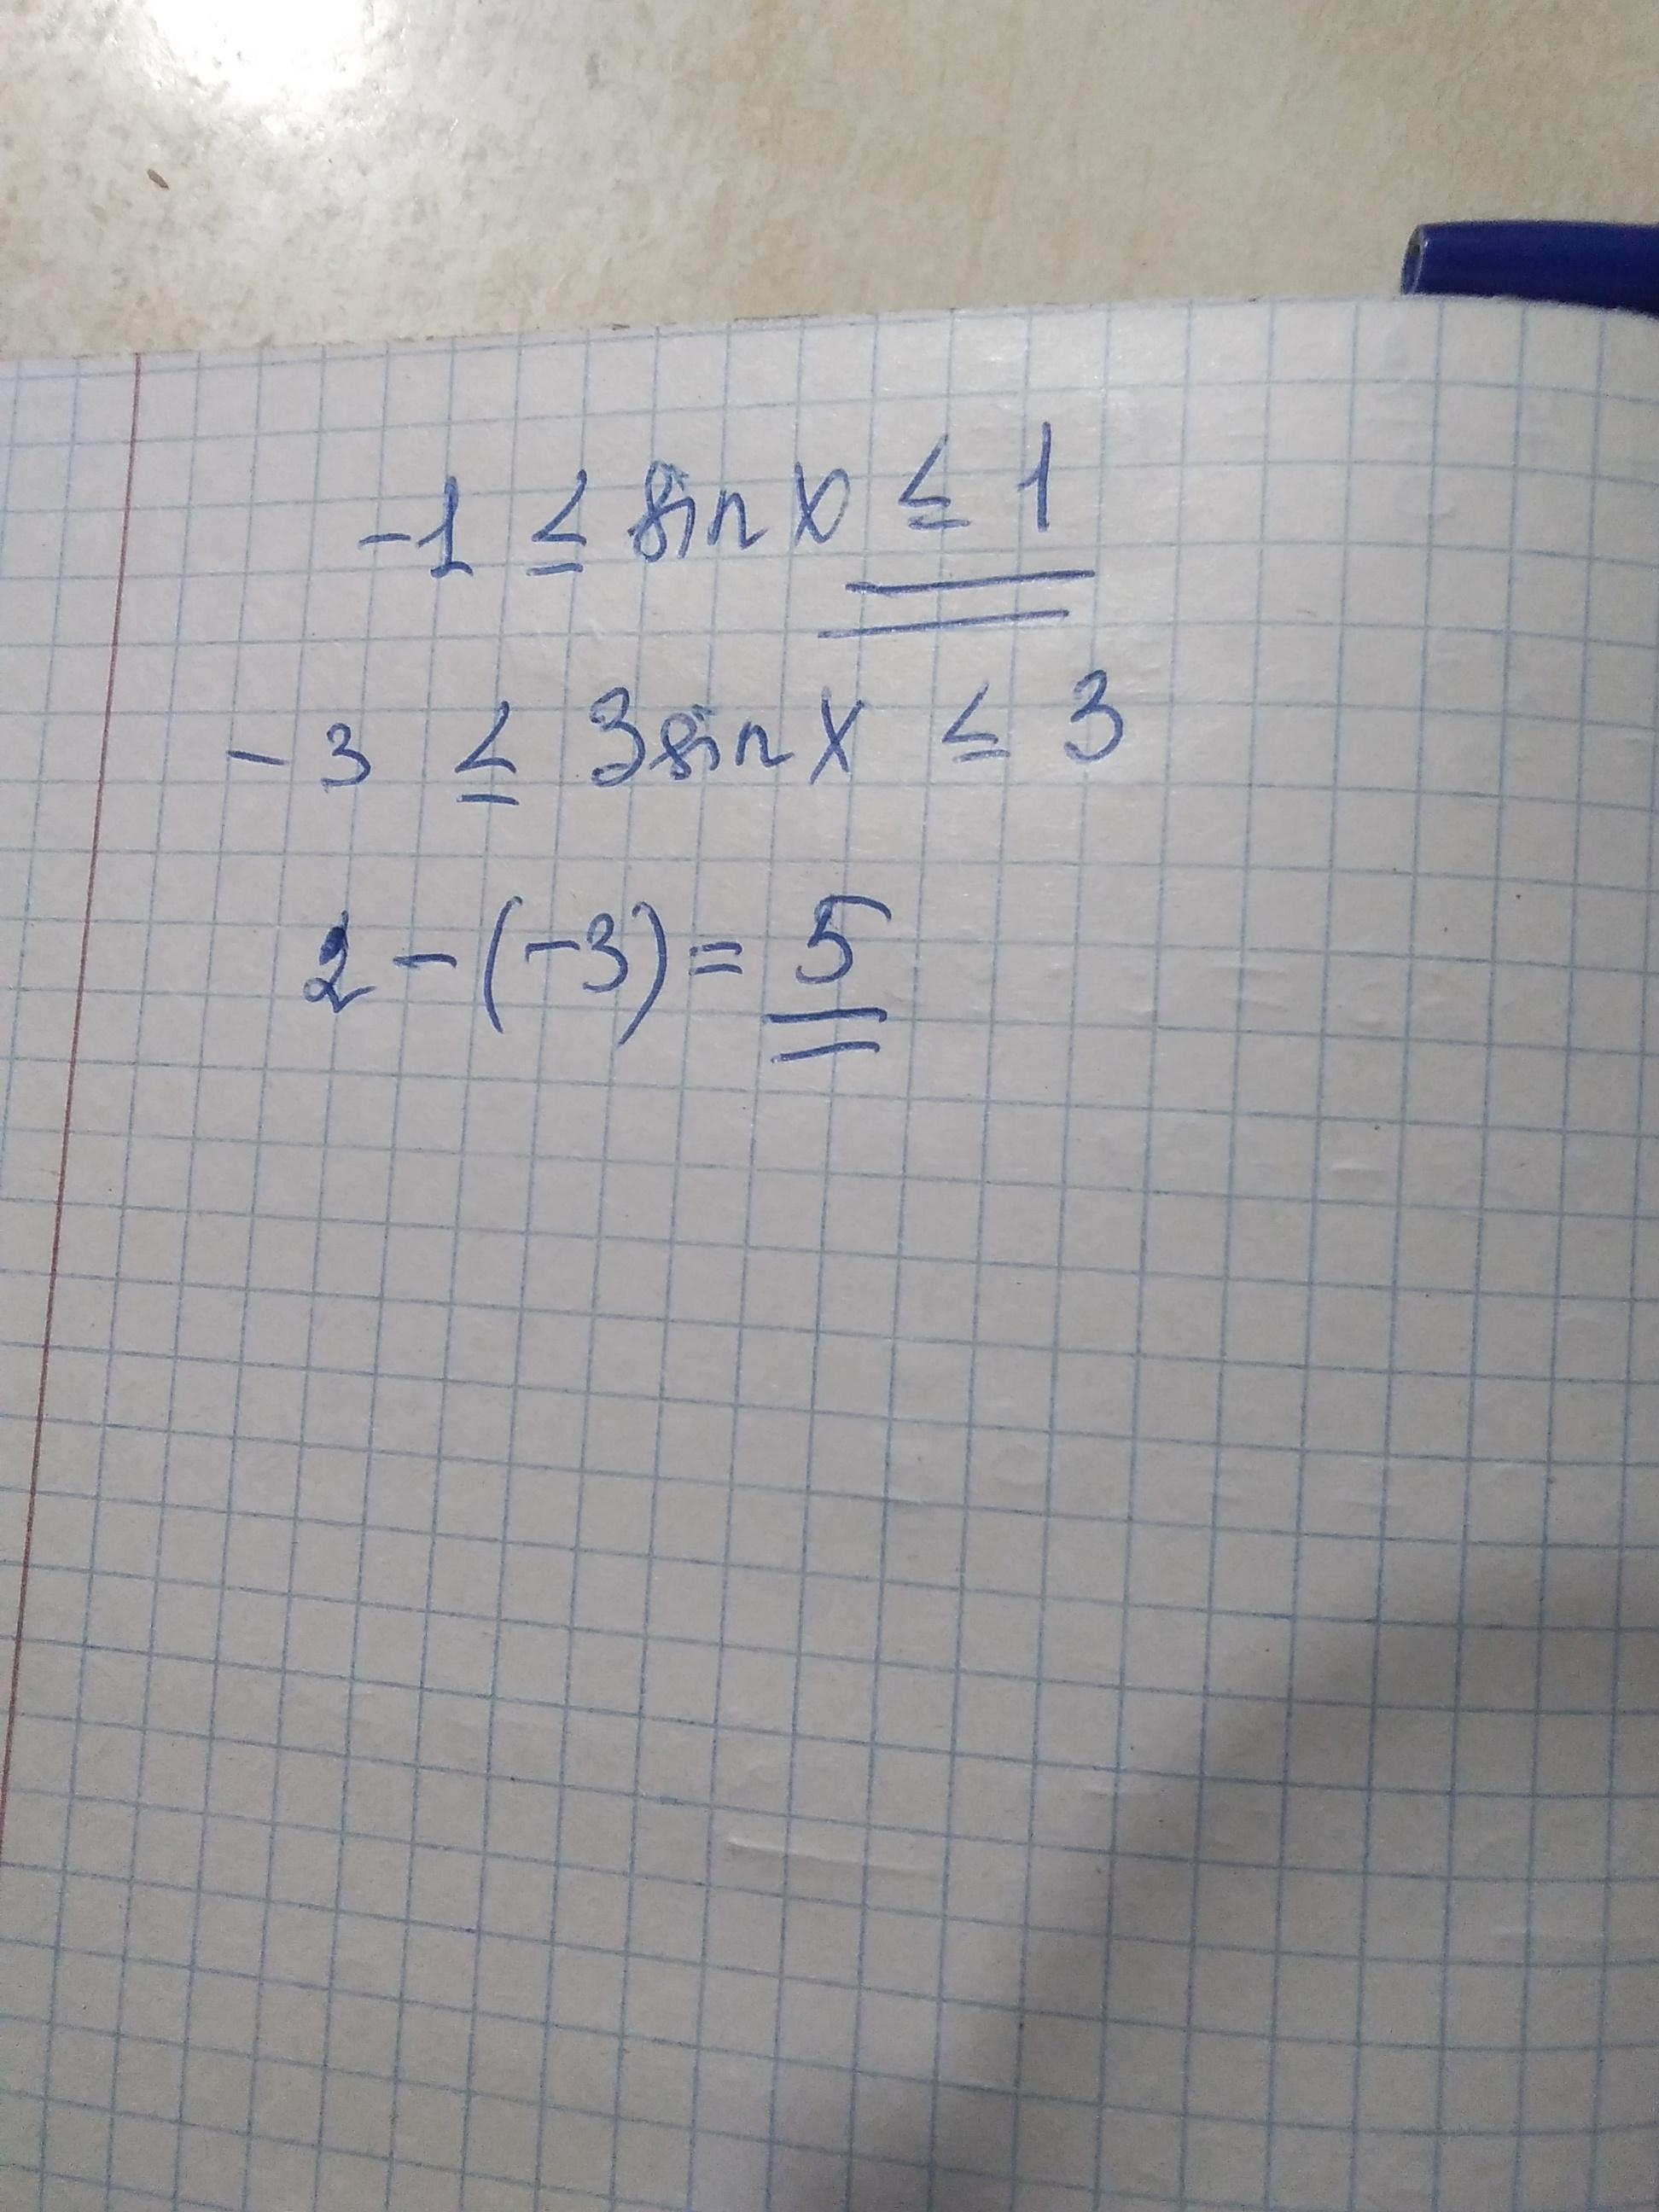 -1 ≤ sin x ≤ 1
-3 ≤ 3sin x ≤ 3
2 - (-3) = 5